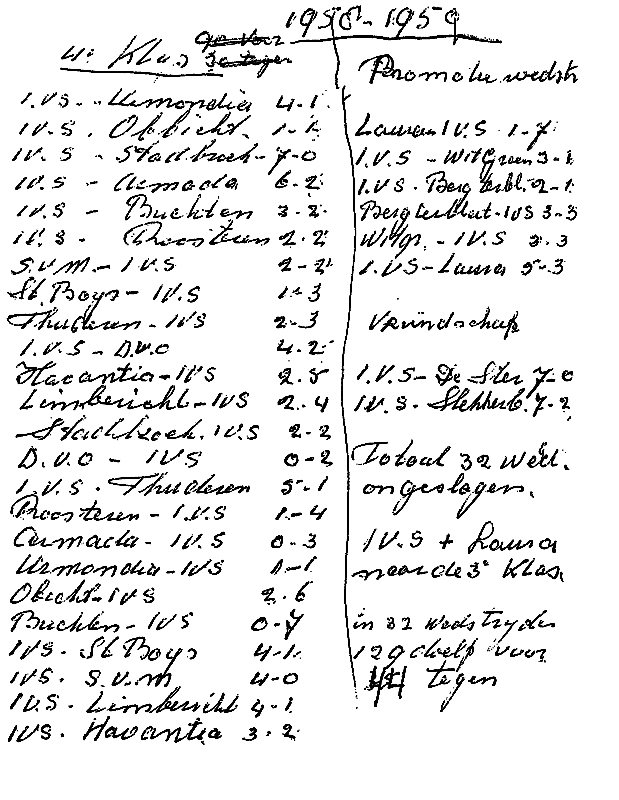 1958-1959
4e Klas
I.V.S. - Urmondia 4-1
IV.S. Obbicht. 1-1
IV.S - Stadbroek - 7-0
IV.S - Armada 6-2
IV.S - Buchten 3-2
IV.S - Roosteren 2-2
S.V.M. - I.V.S 2-2
St. Boys - IV.S 1-3
Thuderen - IVS 2-3
I.V.S - D.V.O 4-2
Havantia - IVS 2-5
Limbericht - IVS 2-4
Stadbroek. IV.S 2-2
D.V.O - IVS 0-2
I.V.S. Thuderen 5-1
Roosteren - I.V.S 1-4
Armada - IV.S 0-3
Urmondia - IVS 1-1
Obicht - IVS 2-6
Buchten - IVS 0-7
IVS. St Boys 4-1
IVS. S.V.M 4-0
IV.S - Limbericht 4-1
IVS. Havantia 3-2
Promotie wedstr
Laura IV.S 1-7
I.V.S - Wit Groen 3-1
I.V.S. Bergterblt. 2-1
Bergterblut - IVS 3-3
Witgr. - IV.S 3-3
I.VS - Laura 5-3
Vriindschap
I.V.S - De Ster 7-0
IV.S. 7-2
Totaal 32 Wed.
ongeslagen.
IV.S + Laura
naar de 3e Klas
in 32 Wedstryden
129 doelp voor
44 tegen